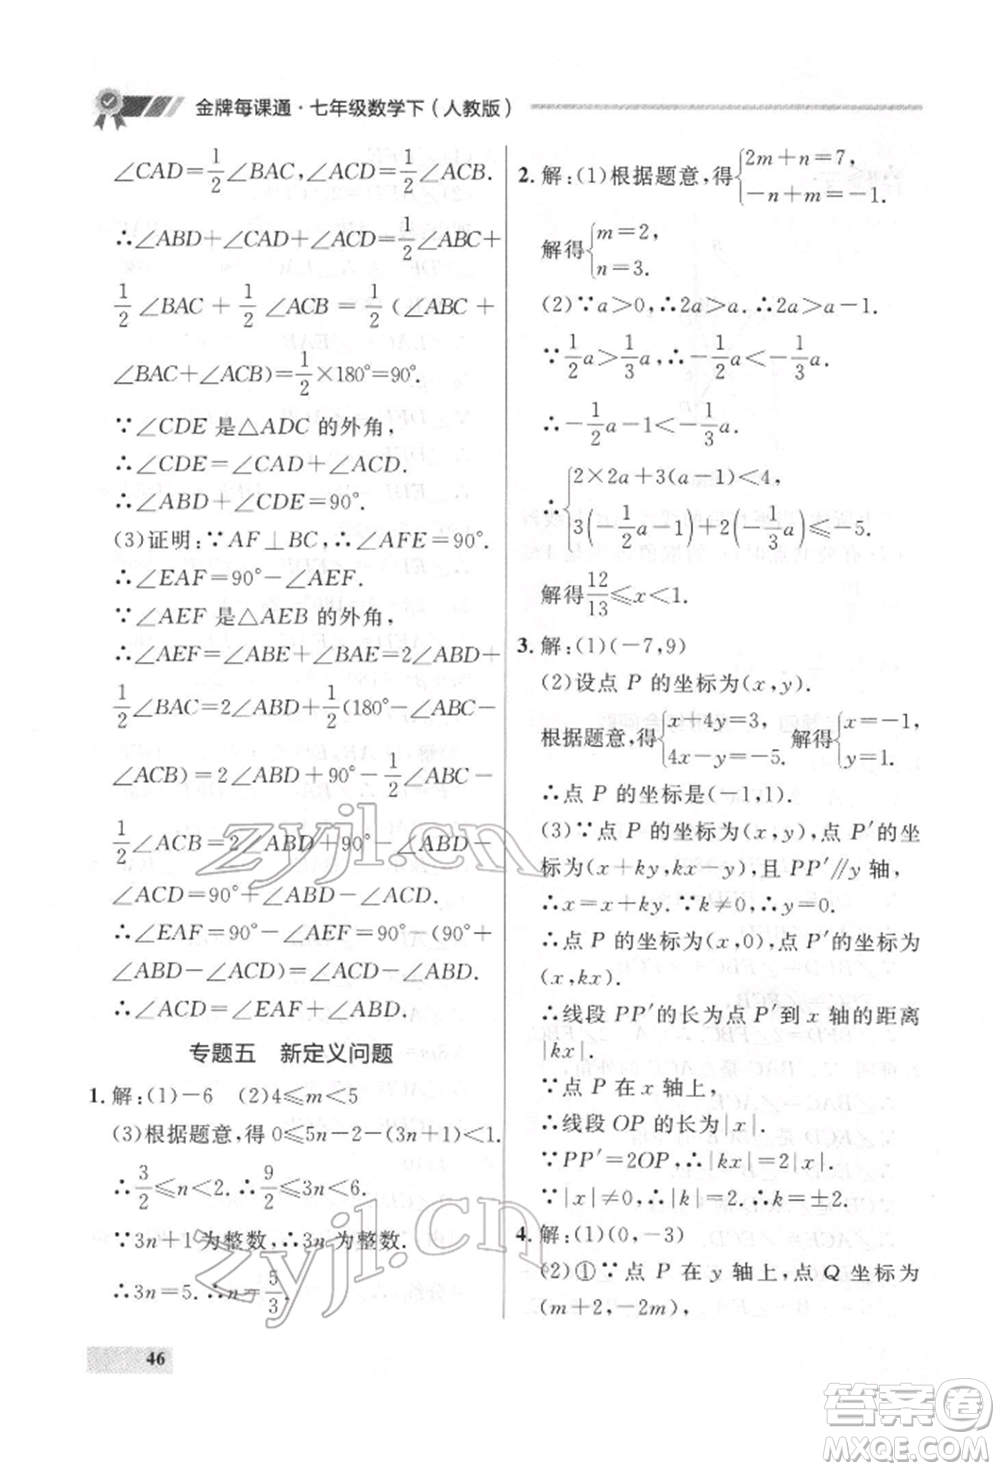 金牌每课通·七年级数学下(人教版)
∠CAD=1/2∠BAC,∠ACD=1/2∠ACB.
∴∠ABD+∠CAD+∠ACD=1/2∠ABC+
1/2∠BAC+1/2∠ACB=1/2(∠ABC+
∠BAC+∠ACB)=1/2×180°=90°.
∵∠CDE 是△ADC 的外角,
∴∠CDE=∠CAD+∠ACD.
∴∠ABD+∠CDE=90°.
(3)证明:∵AF⊥BC,∴∠AFE=90°.
∴∠EAF=90°-∠AEF.
∵∠AEF 是△AEB 的外角,
∴∠AEF=∠ABE+∠BAE=2∠ABD+
1/2∠BAC=2∠ABD+1/2(180°-∠ABC-
∠ACB)=2∠ABD+90°-1/2∠ABC-
1/2∠ACB=2∠ABD+90°-∠ABD-
∠ACD=90°+∠ABD-∠ACD.
∴∠EAF=90°-∠AEF=90°-(90°+
∠ABD-∠ACD)=∠ACD-∠ABD.
∴∠ACD=∠EAF+∠ABD.
专题五 新定义问题
1.解:(1)-6 (2)4≤m<5
(3)根据题意,得 0≤5n-2-(3n+1)<1.
∴3/2≤n<2.∴9/2≤3n<6.
∵3n+1 为整数,∴3n 为整数.
∴3n=5.∴n=5/3.
46
2.解:(1)根据题意,得{2m+n=7,
-n+m=-1.
解得{m=2,
n=3.
(2)∵a>0,∴2a>a.∴2a>a-1.
∵1/2a>1/3a,∴-1/2a<-1/3a.
∴-1/2a-1<-1/3a.
∴{2×2a+3(a-1)<4,
3(-1/2a-1)+2(-1/3a)≤-5.
解得12/13≤x<1.
3.解:(1)(-7,9)
(2)设点 P 的坐标为(x,y).
根据题意,得{x+4y=3,
4x-y=-5. 解得{x=-1,
y=1.
∴点 P 的坐标是(-1,1).
(3)∵点 P 的坐标为(x,y),点 P′的坐
标为(x+ky,kx+y),且 PP′∥y 轴,
∴x=x+ky.∵k≠0,∴y=0.
∴点 P 的坐标为(x,0),点 P′的坐标为
(x,kx).
∴线段 PP′的长为点 P′到 x 轴的距离
|kx|.
∵点 P 在 x 轴上,
∴线段 OP 的长为|x|.
∵PP′=2OP,∴|kx|=2|x|.
∵|x|≠0,∴|k|=2.∴k=±2.
4.解:(1)(0,-3)
(2)①∵点 P 在 y 轴上,点 Q 坐标为
(m+2,-2m),
zyjl.cn
zyjl.cn
答案圈
MXQE.COM